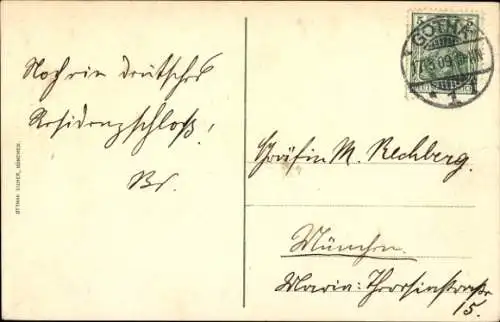 Noch ein deutsches
Residenzschloß!
Br.
OTTMAR ZIEHER, MÜNCHEN.
5 5
GOTHA
17.3.09
* 1 *
Gräfin M. Rechberg.
München.
Maria-Theresiastraße
15.